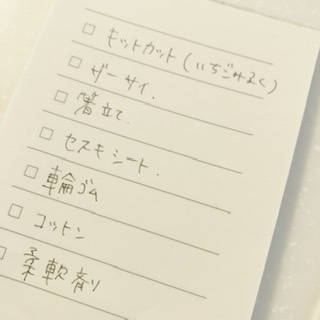 キットカット(いちごみるく)
ザーサイ.
箸立て.
セスキシート.
輪ゴム
コットン
柔軟剤